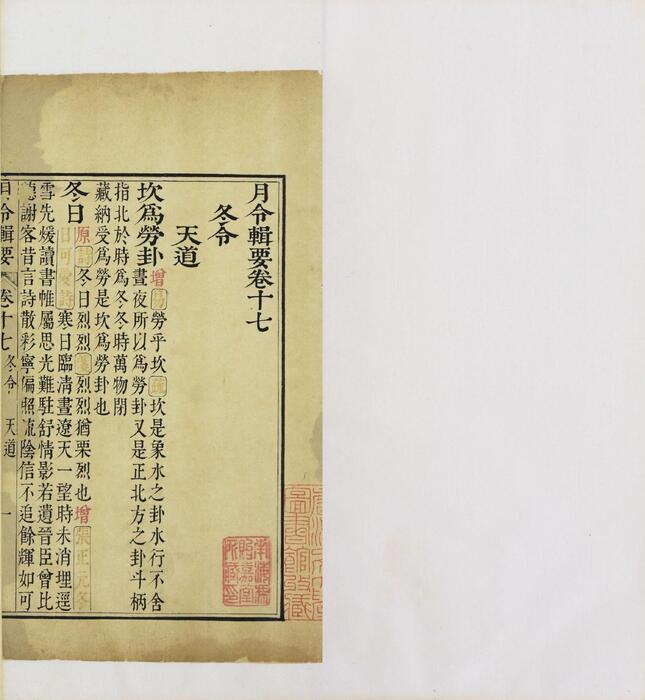 月令輯要卷十七
冬令
天道
坎爲勞卦增易勞乎坎疏坎是象水之卦水行不舍
晝夜所以爲勞卦又是正北方之卦斗柄
指北於時爲冬冬時萬物閉
藏納受爲勞是坎爲勞卦也
冬日原詩冬日烈烈箋烈烈猶栗烈也增張正元冬
日可愛詩寒日臨清晝遼天一望時未消埋逕
雪先煖讀書帷屬思光難駐舒情影若遺晉臣曾比
謝客昔言詩散彩寧偏照流陰信不追餘輝如可
月令輯要 卷十七 冬令 天道 一